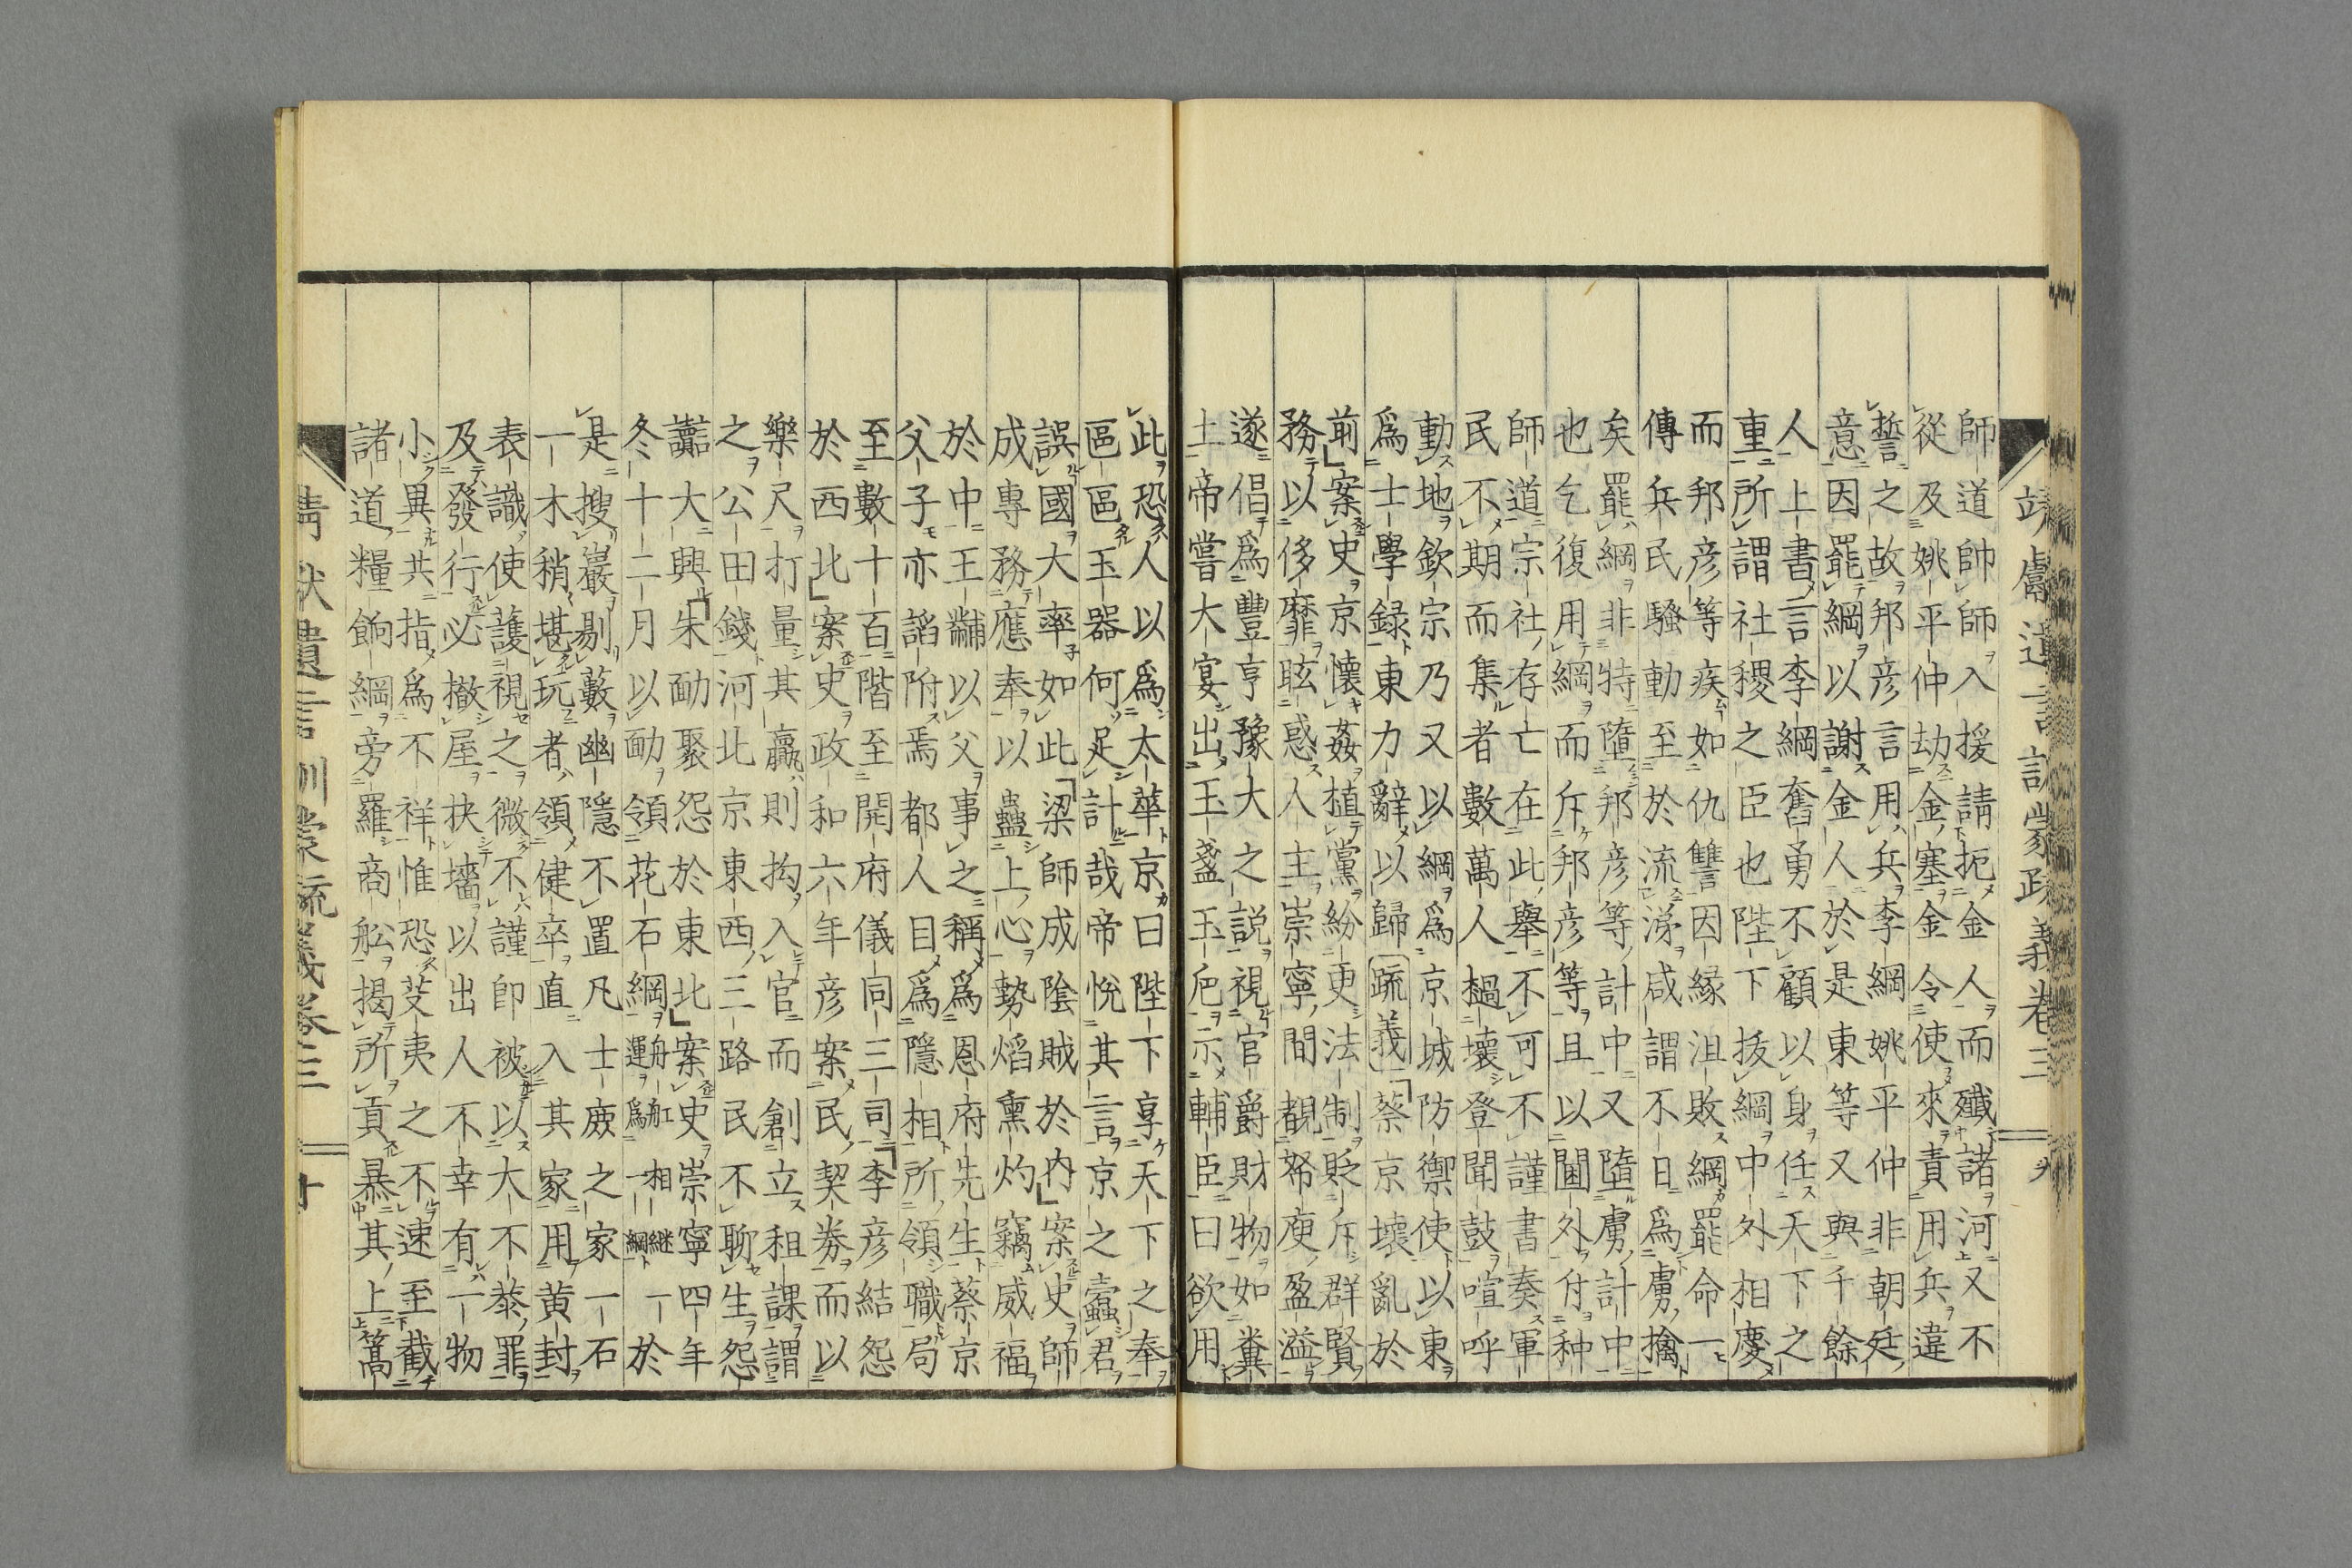 靖獻遺言訓蒙疏義卷三
師道帥師入援請扼金人而殲諸河又不
從及姚平仲劫金塞金令使來責用兵違
誓之故邦彦言用兵李綱姚平仲非朝廷
意因罷綱以謝金人於是東等又與千餘
人上書言李綱奮勇不顧以身任天下之
重所謂社稷之臣也陛下拔綱中外相慶
而邦彦等疾如仇讐因縁沮敗綱罷命一
傳兵民騷動至於流涕咸謂不日爲虜擒
矣罷綱非特墮邦彦等計中又墮虜計中
也乞復用綱而斥邦彦等且以閫外付种
師道宗社存亡在此舉不可不謹書奏軍
民不期而集者數萬人撾壞登聞鼓喧呼
動地欽宗乃又以綱爲京城防禦使以東
爲士學録東力辭以歸疏義蔡京壞亂於
前案史京懷姦植黨紛更法制貶斥群賢
務以侈靡眩惑人主崇寧間覩帑庾盈溢
遂倡爲豐亨豫大之説視官爵財物如糞
土帝嘗大宴出玉盞玉巵示輔臣曰欲用
此恐人以爲太華京曰陛下享天下之奉
區區玉器何足計哉帝悅其言京之蠧君
誤國大率如此梁師成陰賊於内案史師
成專務應奉以蠱上心勢焰熏灼竊威福
於中王黼以父事之稱爲恩府先生蔡京
父子亦諂附焉都人目爲隱相所領職局
至數十百階至開府儀同三司李彦結怨
於西北案史政和六年彦案民契券而以
樂尺打量其贏則拘入官而創立租課謂
之公田錢河北京東西三路民不聊生怨
讟大興朱勔聚怨於東北案史崇寧四年
冬十二月以勔領花石綱舟舡相継運爲一綱於
是搜巖剔藪幽隱不置凡士庶之家一石
一木稍堪玩者領健卒直入其家用黄封
表識使護視之微不謹即被以大不恭罪
及發行必撤屋抉墻以出人不幸有一物
小異共指爲不祥惟恐芟夷之不速至截
諸道糧餉綱旁羅商舩揭所貢暴其上篙
靖獻遺言訓蒙疏義卷三 十